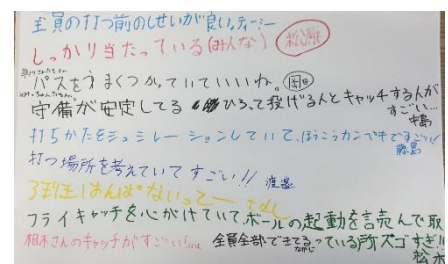 全員の打つ前のしせいが良い。ティーミー
しっかり当たっている(みんな) 松原
パスをうまくつかっていていいね。
守備が安定してる ひろって投げる人とキャッチする人がすごい…
打ちかたをシュミレーションしていて、ほうこうカンペキですごい!!
打つ場所を考えていてすごい!! 渡邉
3班はんぱないってー
フライキャッチを心がけていて、ボールの起動を読んで取
相木さんのキャッチがすごい! 全員全部できてるっている所スゴすぎ!!
松木